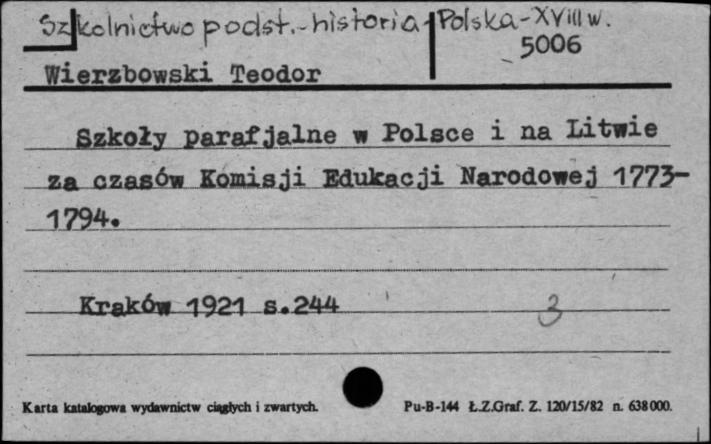 Szkolnictwo podst.-historia-Polska-XVIII w.
5006
Wierzbowski Teodor
Szkoły parafjalne w Polsce i na Litwie
za czasów Komisji Edukacji Narodowej 1773-
1794.
Kraków 1921 s.244
3
Karta katalogowa wydawnictw ciągłych i zwartych.
Pu-B-144 Ł.Z.Graf. Z. 120/15/82 n. 638000.